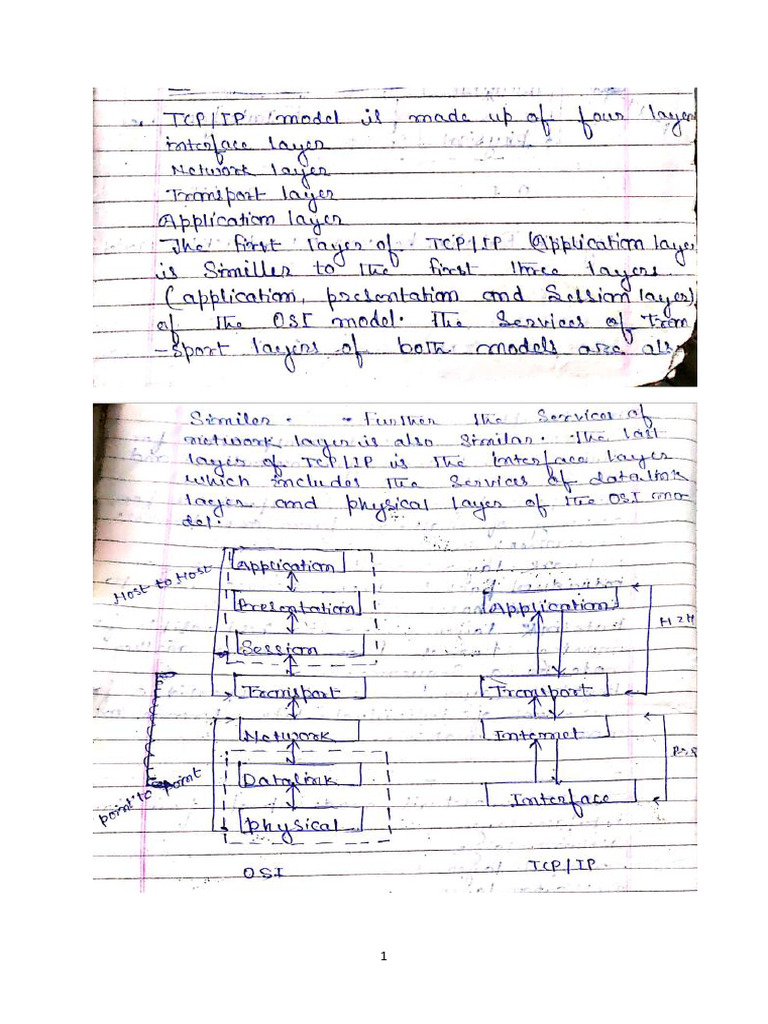 TCP/IP model is made up of four layer
interface layer
Network layer
Transport layer
Application layer
The first layer of TCP/IP (Application layer
is Similler to the first three layers
(application, presentation and Session layer)
of the OSI model. The Services of Tran
-sport layers of both models are als
Similer. Further the Services of
network layer is also Similar. The last
layer of TCP/IP is the interface layer
which includes the Services of datalink
layer and physical layer of the OSI mo-
del.
Host to Host
Application
Presentation
Session
Transport
Network
Datalink
physical
point to point
OSI
Application
Transport
Internet
Interface
H2H
TCP/IP
1